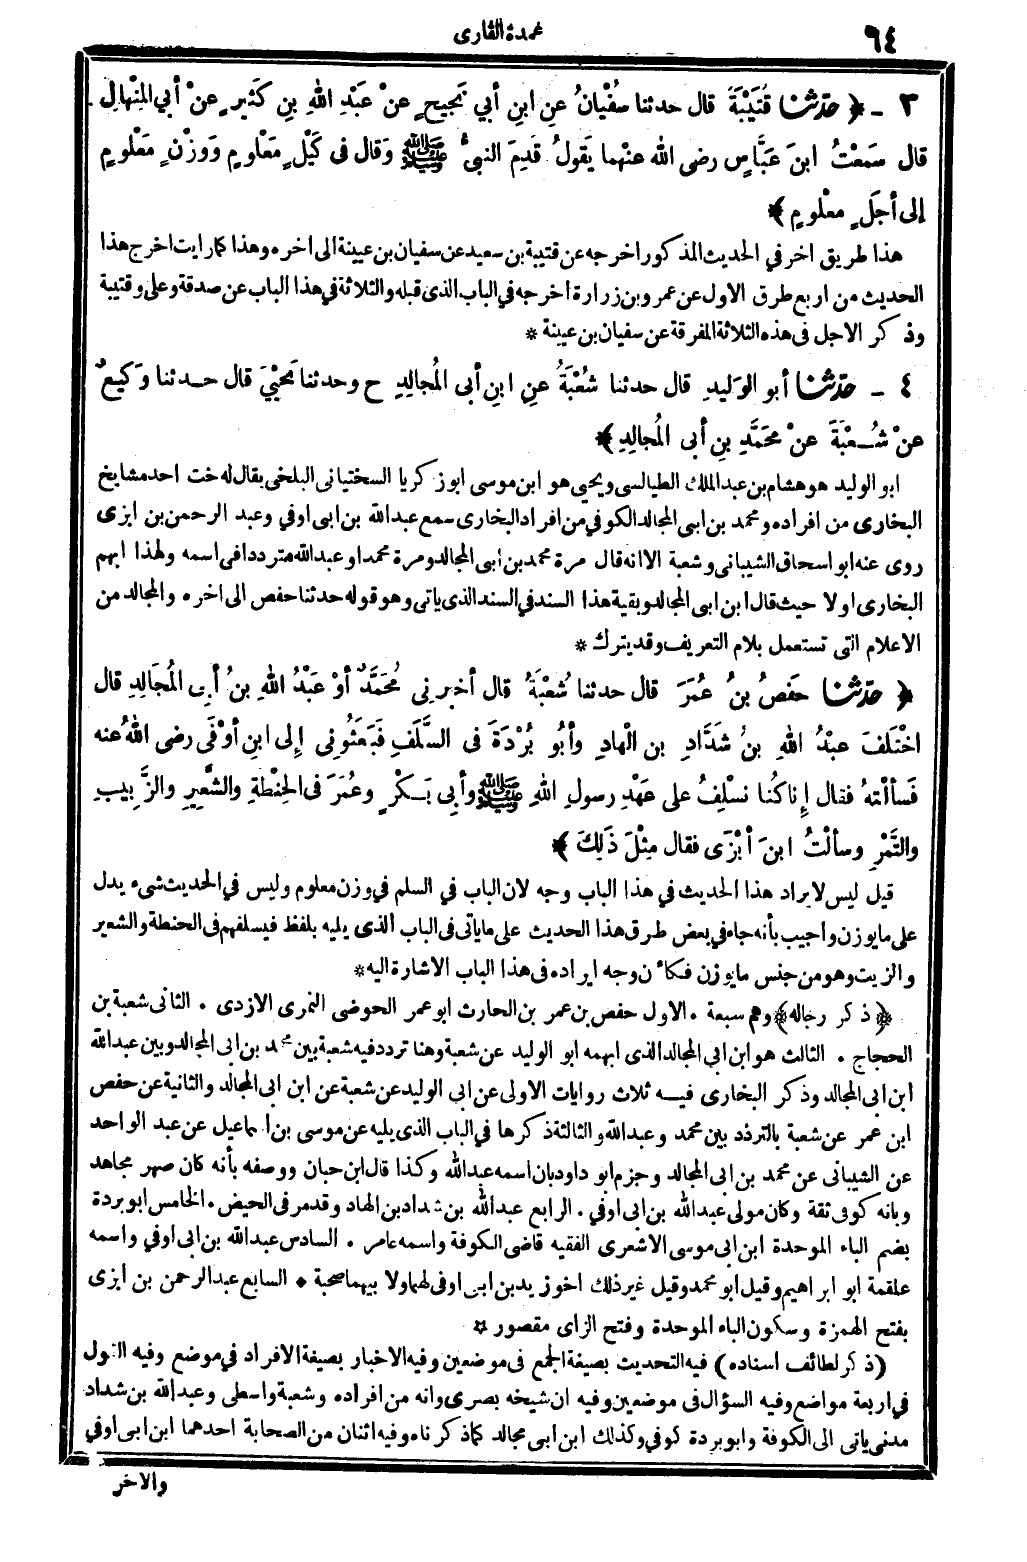 ٦٤
عمدة القارى
٣ - ﴿ حَدَّثَنَا قُتَيْبَةُ قال حدثنا سُفْيَانُ عنِ ابنِ أبي نَجِيحٍ عنْ عَبْدِ اللهِ بنِ كَثِيرٍ عنْ أبي المِنْهالِ
قال سَمَعْتُ ابنَ عَبَّاسٍ رضى الله عنْهما يَقولُ قَدِمَ النبيُّ ﷺ وَقال فى كَيْلٍ مَعْلومٍ وَوزْنٍ مَعْلومٍ
إلى أجَلٍ معْلومٍ ﴾
هذا طريق اخر في الحديث المذكور اخرجه عن قتيبة بن سعيد عن سفيان بن عيينة الى اخره وهذا كما رايت اخرج هذا
الحديث من اربع طرق الاول عن عمرو بن زرارة اخرجه في الباب الذى قبله والثلاثة في هذا الباب عن صدقة وعلى وقتيبة
وذكر الاجل فى هذه الثلاثة المفرقة عن سفيان بن عيينة *
٤ - حَدَّثَنَا أبو الوَليدِ قال حدثنا شُعْبَةُ عنِ ابنِ أبى المُجالِدِ ح وحدثنا يَحْيىَ قال حـدثنا وَكيعٌ
عنْ شُـعْبَةَ عنْ محَمَّدِ بنِ أبى المُجالِدِ ﴾
ابو الوليد هو هشام بن عبد الملك الطيالسى ويحيى هو ابن موسى ابو زكريا السختيانى البلخى يقال له خت احد مشايخ
البخارى من افراده ومحمد بن ابى المجالد الكوفي من افراد البخارى سمع عبد الله بن ابى اوفي وعبد الرحمن بن ابزى
روى عنه ابو اسحاق الشيبانى وشعبة الا انه قال مرة محمد بن أبى المجالد ومرة محمد او عبد الله متردد افى اسمه ولهذا ابهم
البخارى اولا حيث قال ابن ابى المجالد وبقية هذا السند في السند الذى ياتى وهو قوله حدثنا حفص الى اخره والمجالد من
الاعلام التى تستعمل بلام التعريف وقد يترك *
﴿ حَدَّثَنَا حفَصُ بنُ عُمَرَ قال حدثنا شُعْبَةُ قال أخبرنى مُحَمَّدٌ أوْ عبْدُ اللهِ بنُ أبِى المُجَالِدِ قال
اخْتَلَفَ عبْدُ اللهِ بنُ شَدَّادِ بنِ الْهادِ وأبُو بُرْدَةَ فى السَّلَفِ فبَعَثُونى إلى ابنِ أوْفَى رضى اللهُ عنه
فَسألْتهُ فقال إناكُنا نسْلِفُ على عَهْدِ رسولِ اللهِ ﷺ وأبى بَـكْرٍ وعُمَرَ فى الحِنْطَةِ والشَّعِيرِ والزَّبِيبِ
والتَّمْرِ وسألْتُ ابنَ أبْزَى فقال مِثْلَ ذَلِكَ ﴾
قيل ليس لايراد هذا الحديث في هذا الباب وجه لان الباب في السلم في وزن معلوم وليس في الحديث شىء يدل
على ما يوزن وأجيب بأنه جاء في بعض طرق هذا الحديث على ما ياتى فى الباب الذى يليه بلفظ فيسلفهم فى الحنطة والشعير
والزيت وهو من جنس ما يوزن فكأن وجه ايراده فى هذا الباب الاشارة اليه *
﴿ ذكر رجاله ﴾ وهم سبعة . الاول حفص بن عمر بن الحارث ابو عمر الحوضى النمرى الازدى . الثانى شعبة بن
الحجاج . الثالث هو ابن ابي المجالد الذى ابهمه ابو الوليد عن شعبة وهنا تردد فيه شعبة بين محمد بن ابى المجالد وبين عبد الله
ابن ابى المجالد وذكر البخارى فيـه ثلاث روايات الاولى عن ابي الوليد عن شعبة عن ابن ابى المجالد والثانية عن حفص
ابن عمر عن شعبة بالتردد بين محمد وعبد الله والثالثة ذكرها في الباب الذى يليه عن موسى بن اسماعيل عن عبد الواحد
عن الشيبانى عن محمد بن ابى المجالد وجزم ابو داود بان اسمه عبد الله وكذا قال ابن حبان ووصفه بأنه كان صهر مجاهد
وبانه كوفى ثقة وكان مولى عبد الله بن ابى اوفي . الرابع عبد الله بن شداد بن الهاد وقد مر فى الحيض . الخامس ابو بردة
بضم الباء الموحدة ابن ابى موسى الاشعرى الفقيه قاضى الكوفة واسمه عامر . السادس عبد الله بن ابى اوفي واسمه
علقمة ابو ابراهيم وقيل ابو محمد وقيل غير ذلك اخو زيد بن ابى اوفى لهما ولا بيهما صحبة * السابع عبد الرحمن بن ابزى
بفتح الهمزة وسكون الباء الموحدة وفتح الزاى مقصور *
( ذكر لطائف اسناده ) فيه التحديث بصيغة الجمع فى موضعين وفيه الاخبار بصيغة الافراد في موضع وفيه القول
في اربعة مواضع وفيه السؤال فى موضعين وفيه ان شيخه بصرى وانه من افراده وشعبة واسطى وعبد الله بن شداد
مدنى ياتى الى الكوفة وابو بردة كوفي وكذلك ابن ابى مجالد كما ذكرناه وفيه اثنان من الصحابة احدهما ابن ابى اوفي
والاخر